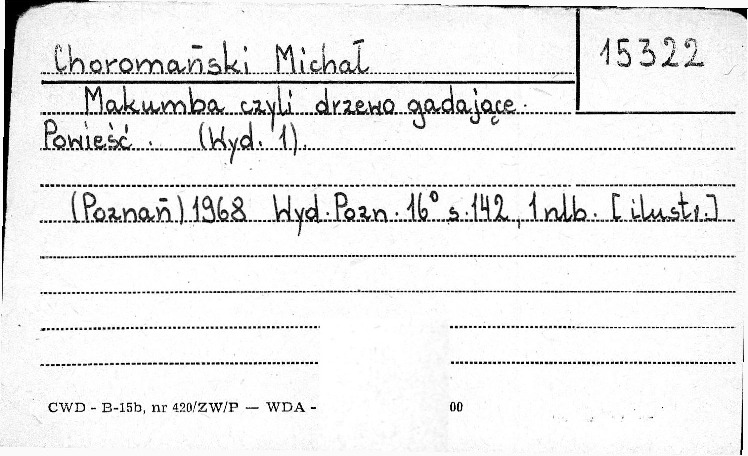 Choromański Michał 15322
Makumba czyli drzewo gadające.
Powieść. (Wyd. 1).
(Poznań) 1968 Wyd. Pozn. 16° s. 142, 1 nlb. [ilustr.]
CWD - B-15b, nr 420/ZW/P — WDA - 00